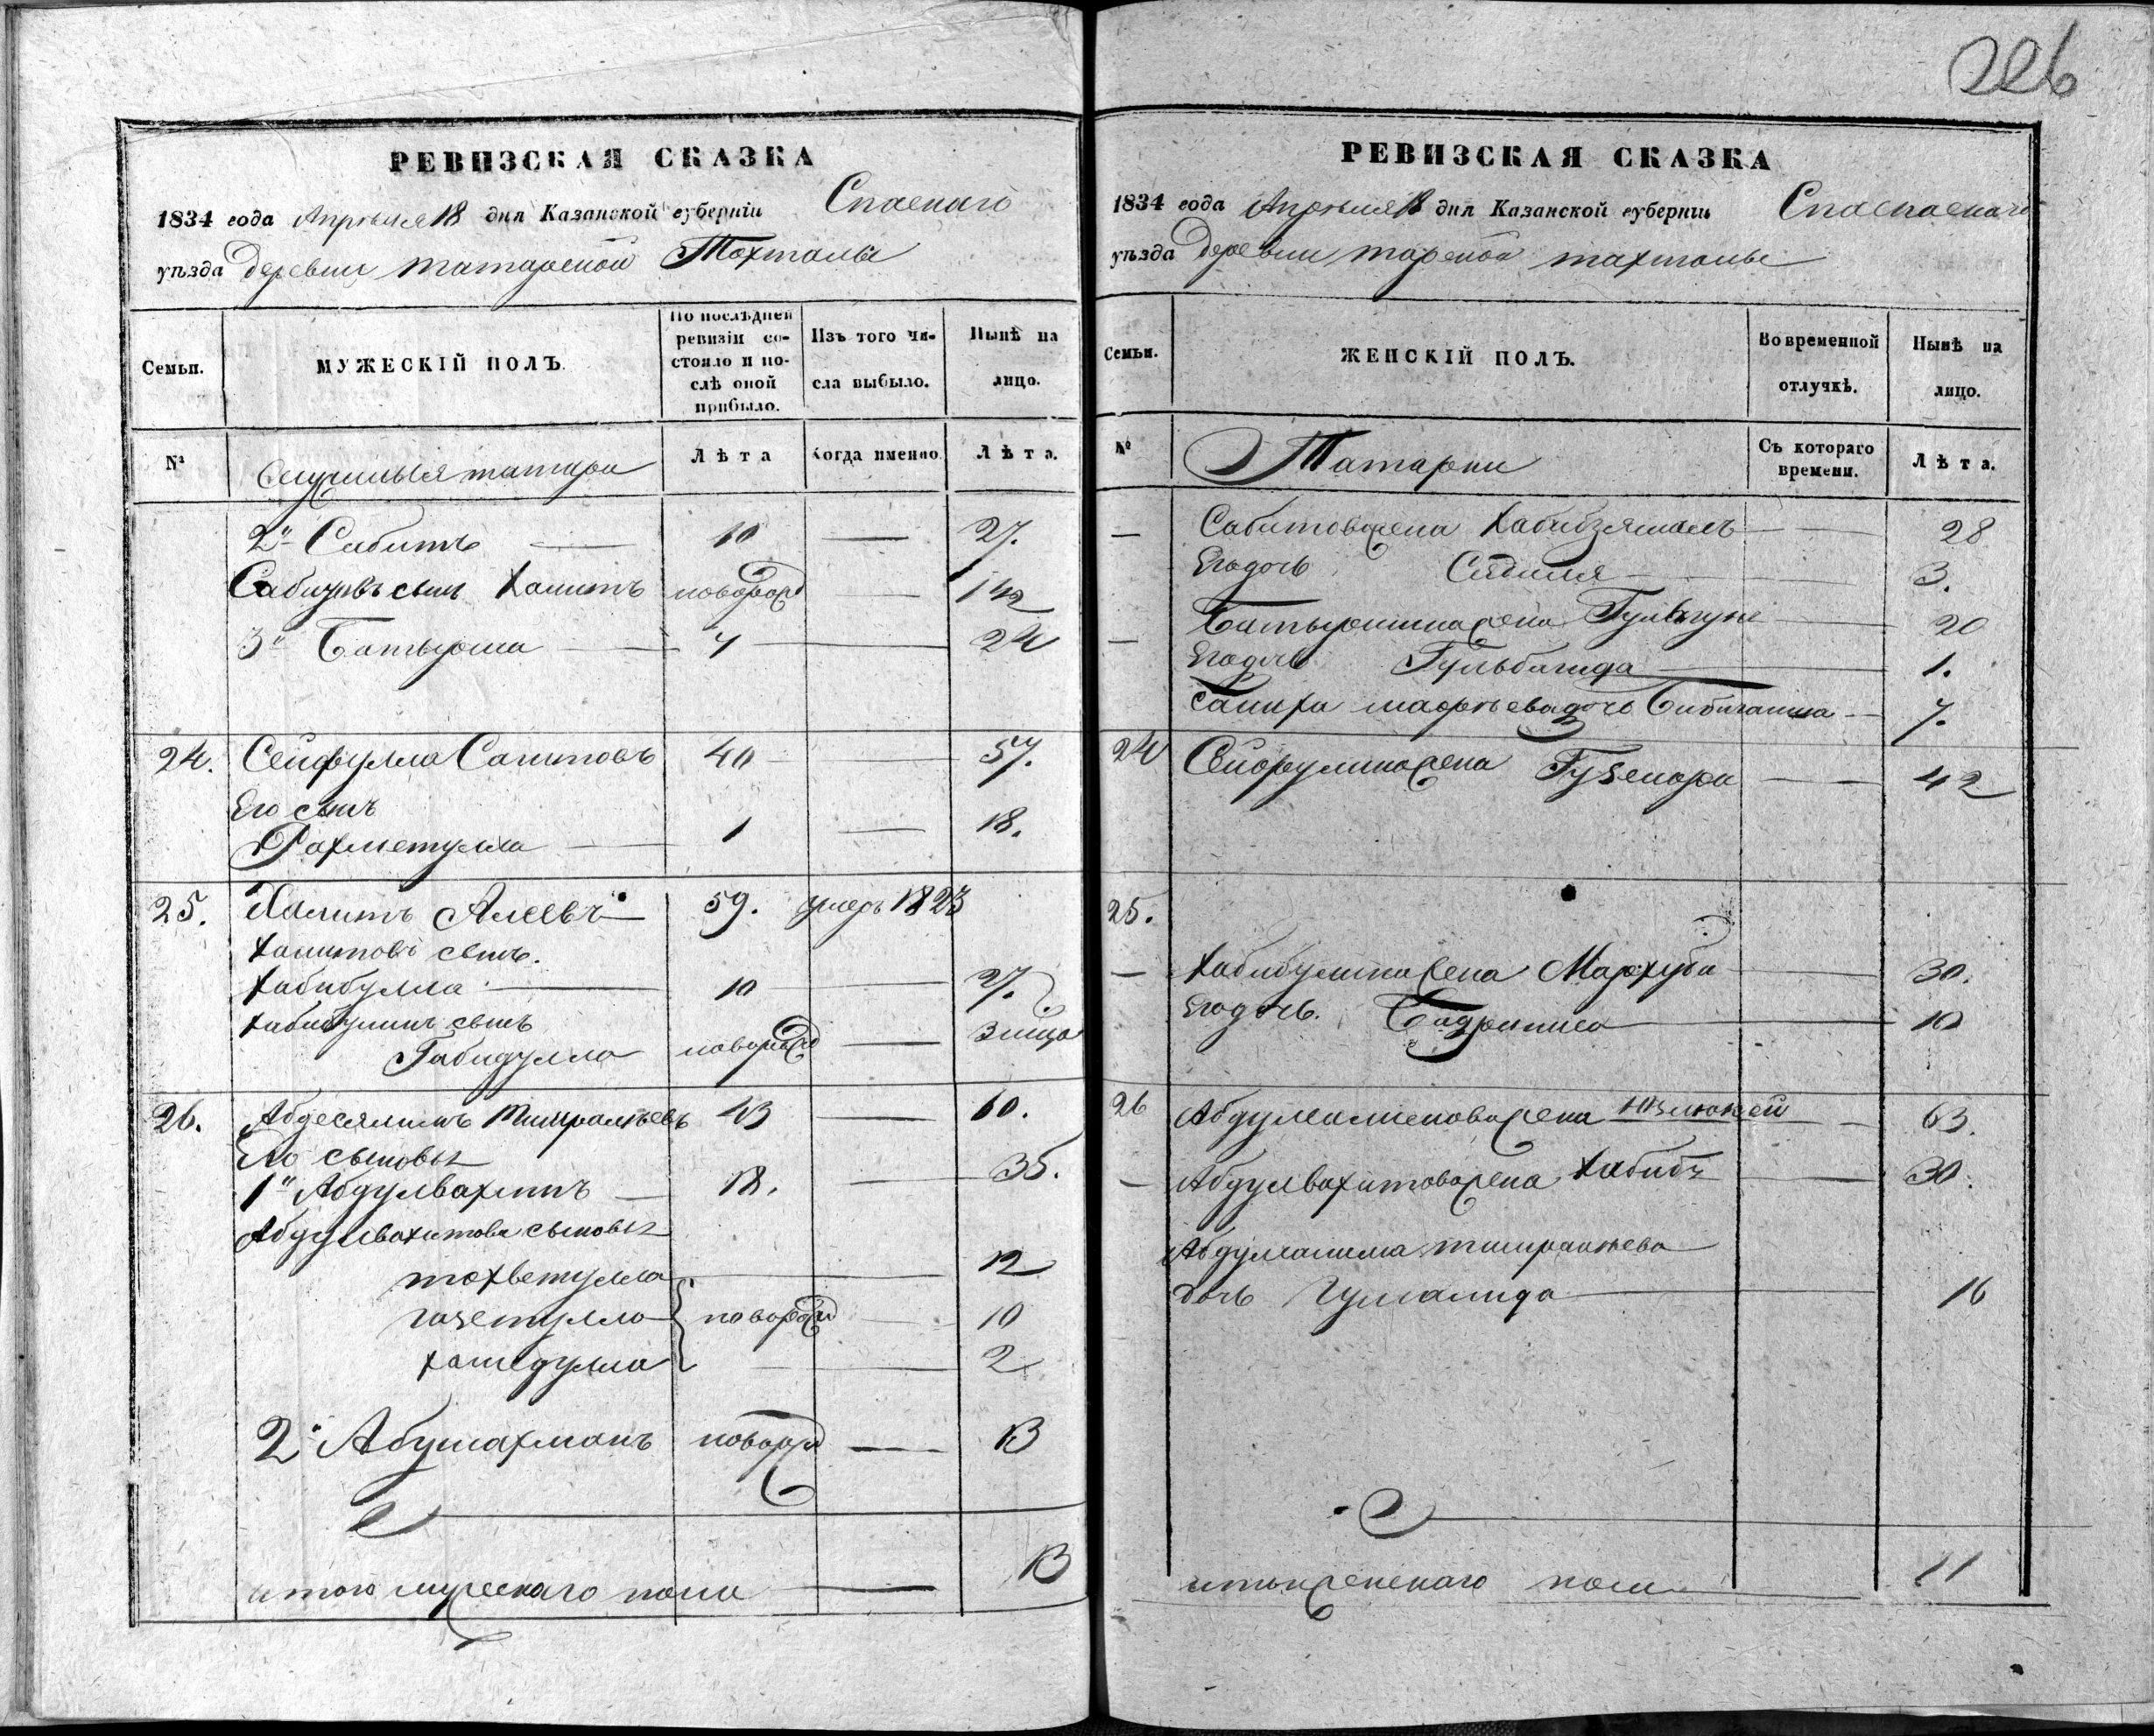 226
РЕВИЗСКАЯ СКАЗКА
1834 года Апреля 18 дня Казанской губерніи Спаскаго
уѣзда деревни татарской Тохталы
Семьи.
МУЖЕСКІЙ ПОЛЪ.
По послѣдней ревизіи состояло и послѣ оной прибыло.
Изъ того числа выбыло.
Нынѣ на лицо.
№
Служилыя татара
Лѣта
Когда именно.
Лѣта.
2й Сабитъ — 10 — 27.
Сабитовъ сынъ Хамитъ новорож — 1 1/2
3й Батырша — 7 — 24
24. Сейфулла Сагитовъ 40 — 57.
Его сынъ
Рахметулла — 1 — 18.
25. Халитъ Алеевъ 59. умеръ 1823
Халитовъ сынъ.
Хабибулла — 10 — 27.
Хабибуллинъ сынъ
Габидулла новорож — 3 года
26. Абдселямъ Тимралѣевъ 43 — 60.
Его сыновья
1й Абдулвахитъ — 18. — 35.
Абдулвахитова сыновья
тохветулла — 12
гизетулло новорож — 10
хамедулла — 2
2й Абдулахманъ новорож — 13
итого мужескаго пола — 13
РЕВИЗСКАЯ СКАЗКА
1834 года Апреля 18 дня Казанской губерніи Спаскаго
уѣзда деревни тарской тахталы
Семьи.
ЖЕНСКІЙ ПОЛЪ.
Во временной отлучкѣ.
Нынѣ на лицо.
№
Татарки
Съ котораго времени.
Лѣта.
— Сабитова жена Хабибзямалъ — 28
Его дочь Сядиля — 3.
— Батыршина жена — 20
Его дочь Гульбагида — 1.
дочь Бибигайша — 7.
24 Сейфуллина жена — 42
25.
— Хабибуллина жена Мархуба — 30.
Его дочь. Бадриниса — 10
26 жена Юзлюкей — 63.
— Абдулвахитова жена Хабиба — 30.
Абдулсалима тимралѣева
дочь — 16
итого женскаго пола — 11